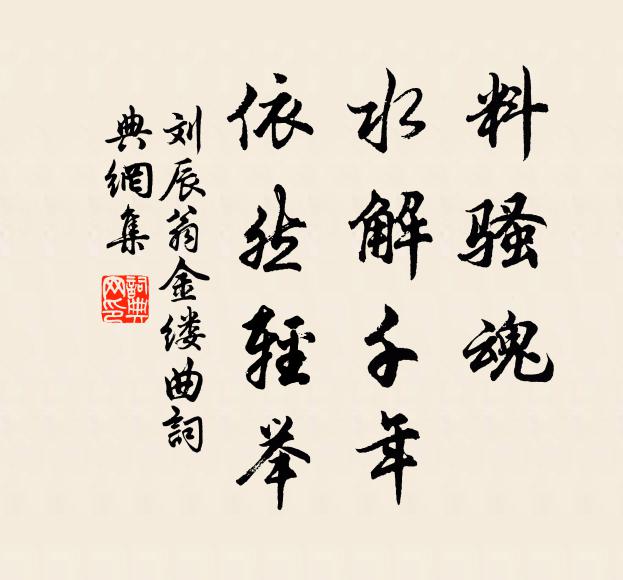 料骚魂
水解千年
依然輕举
刘辰翁金缕曲詞
典網集
詞典网印